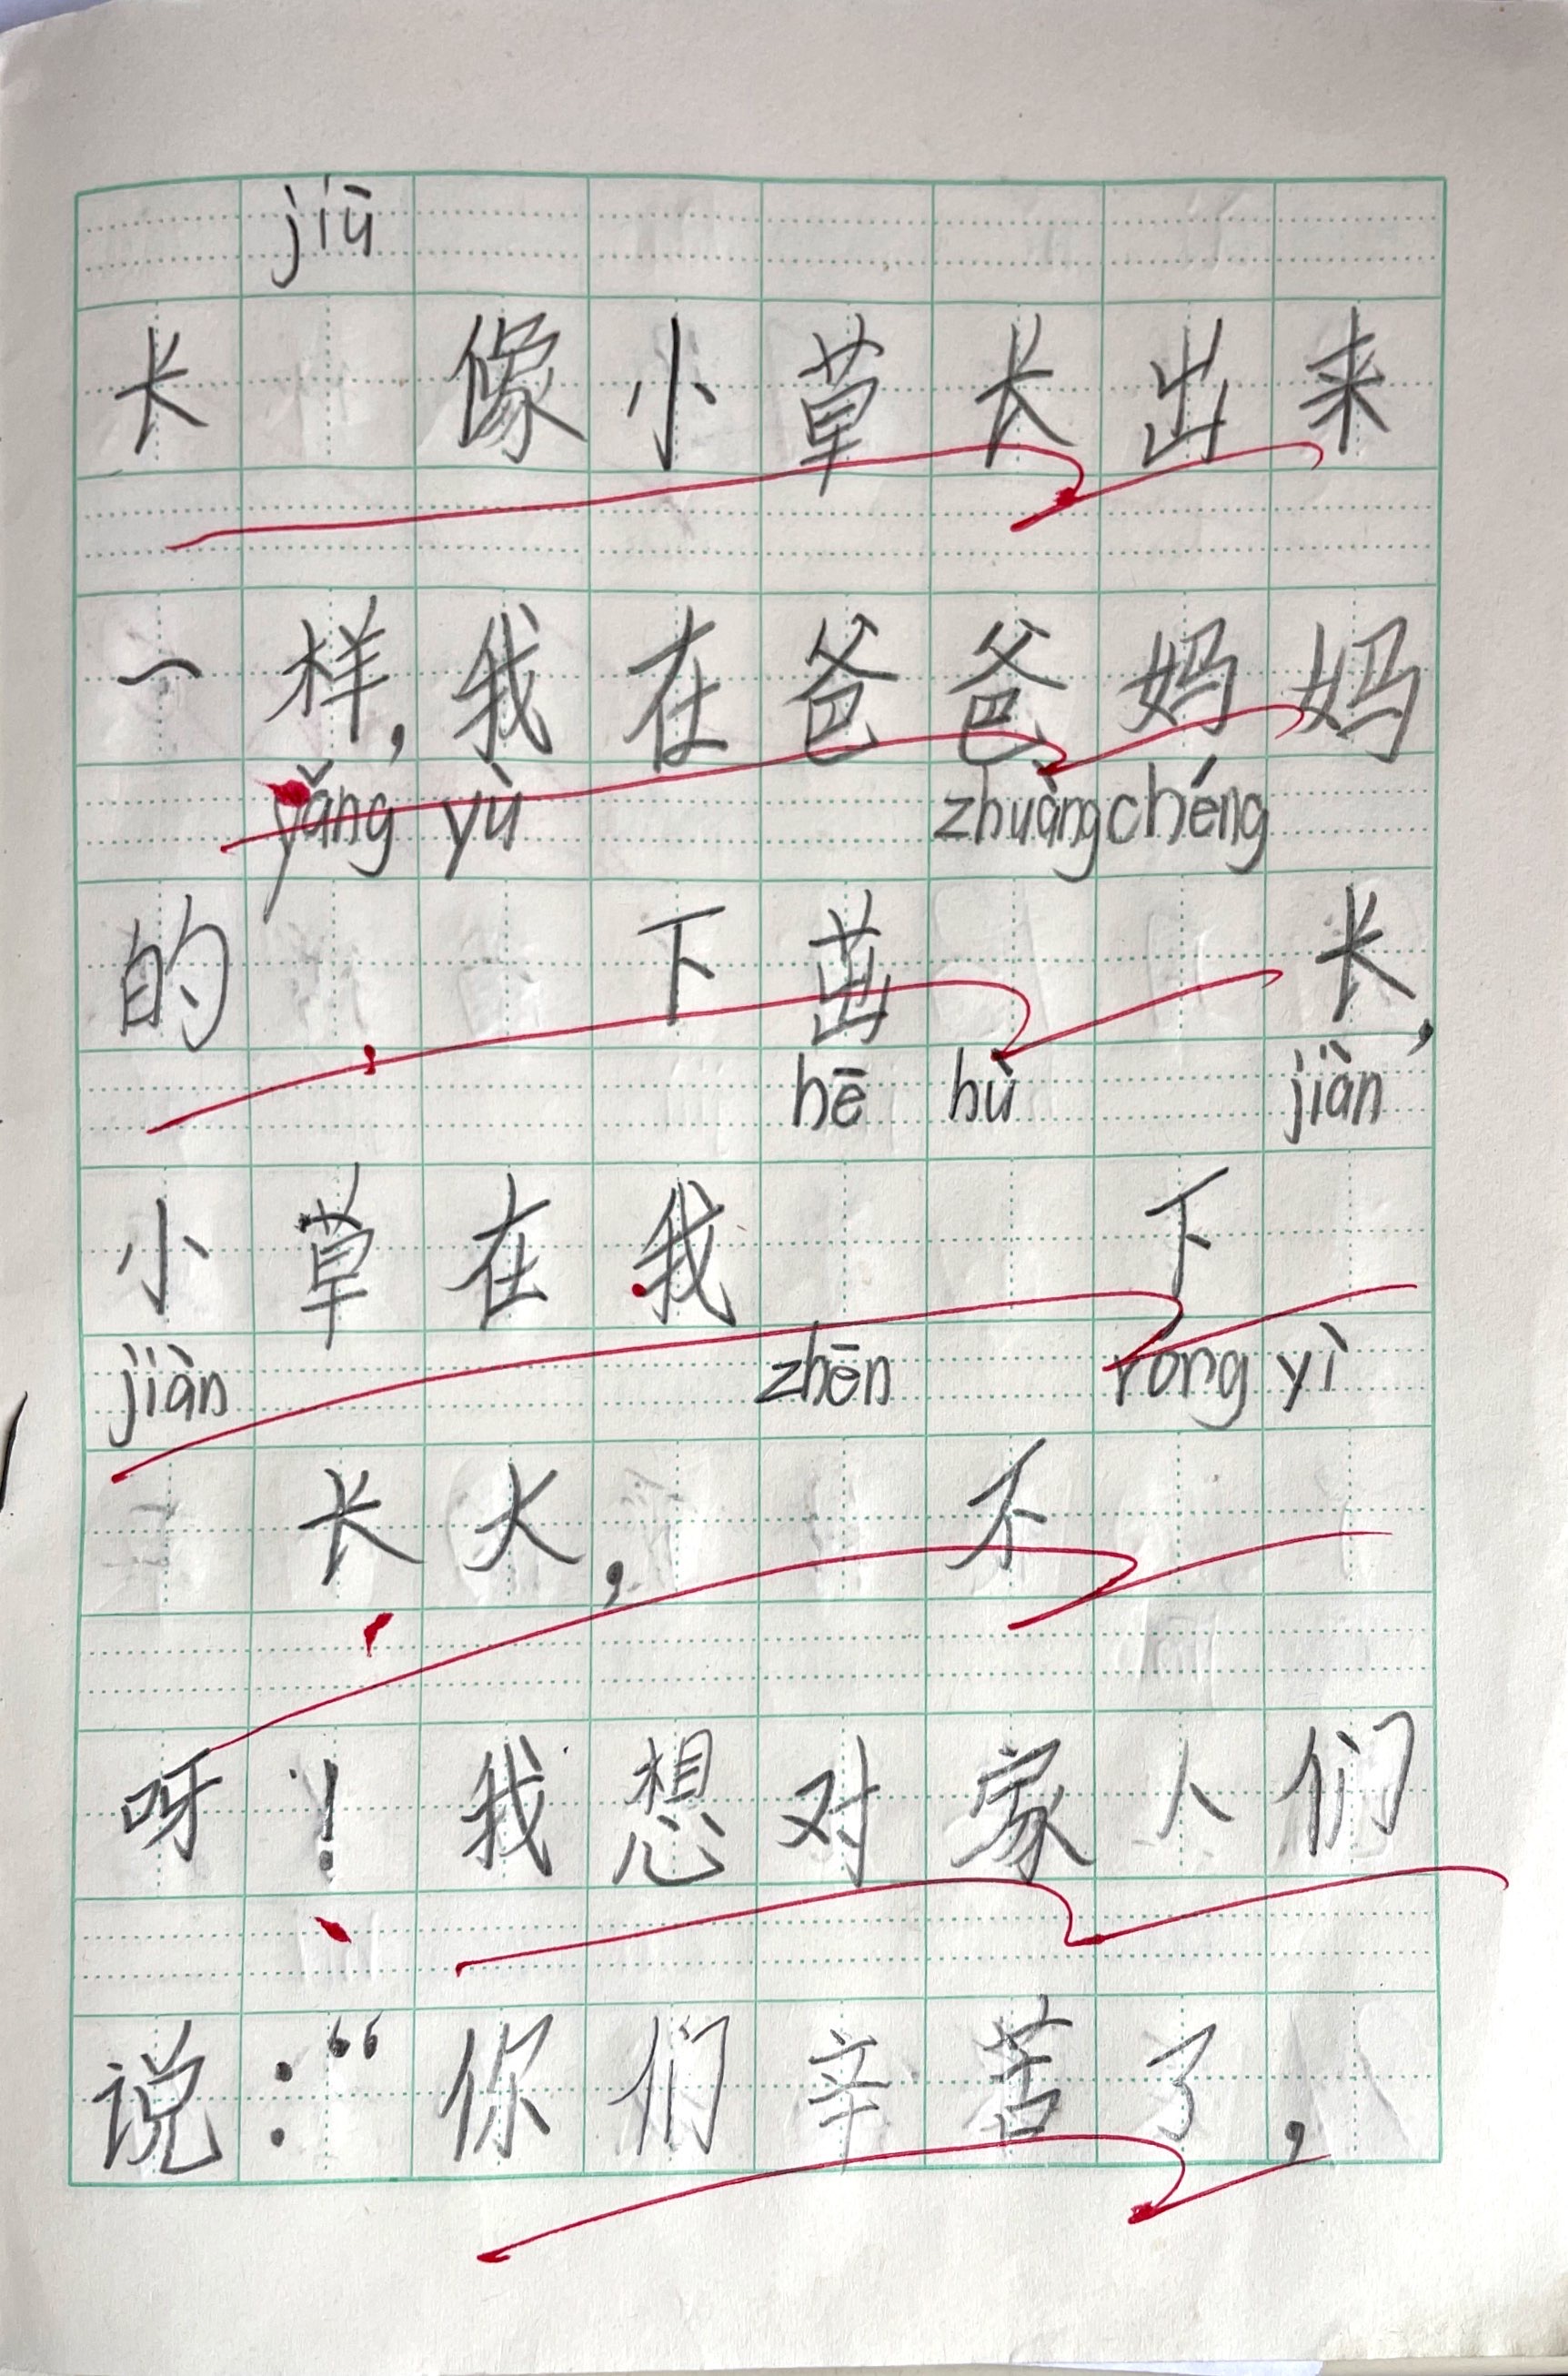 jiù
长 像小草长出来
一样，我在爸爸妈妈
yǎng yù zhuàng chéng
的 下茁 长，
hē hù jiàn
小草在我 下
jiàn zhēn róng yì
长大， 不
呀！我想对家人们
说：“你们辛苦了，